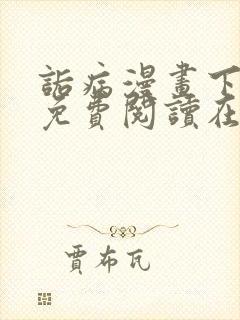 詬病漫畫下
免費閱讀在
賈布瓦